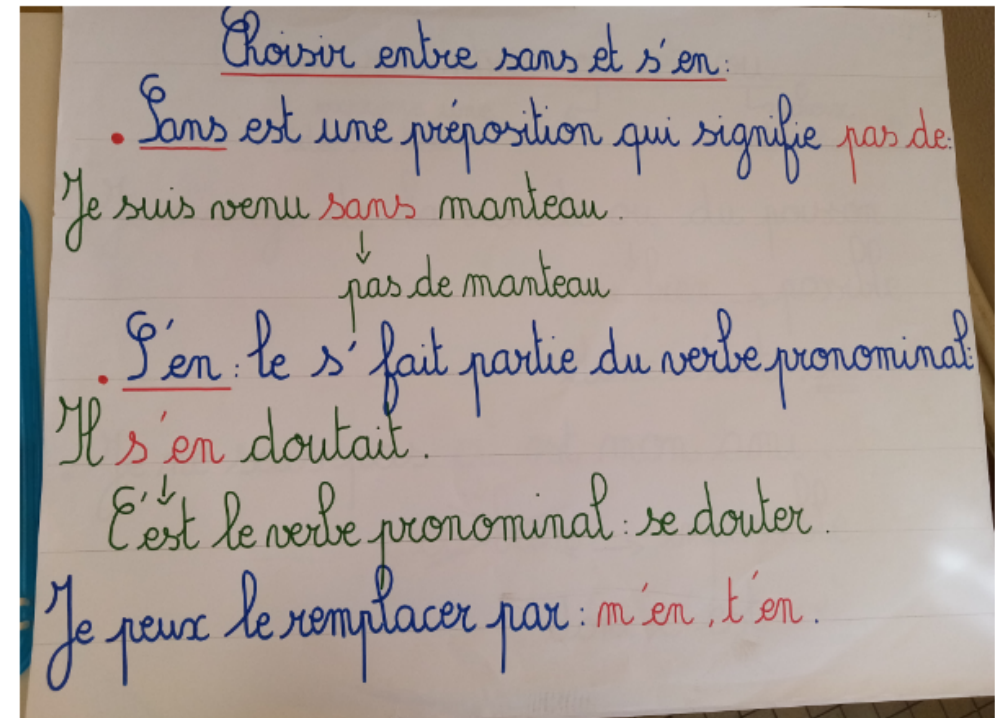 Choisir entre sans et s'en :
• Sans est une préposition qui signifie pas de :
Je suis venu sans manteau.
↓
pas de manteau
• S'en : le s' fait partie du verbe pronominal :
Il s'en doutait.
↓
C'est le verbe pronominal : se douter.
Je peux le remplacer par : m'en, t'en.